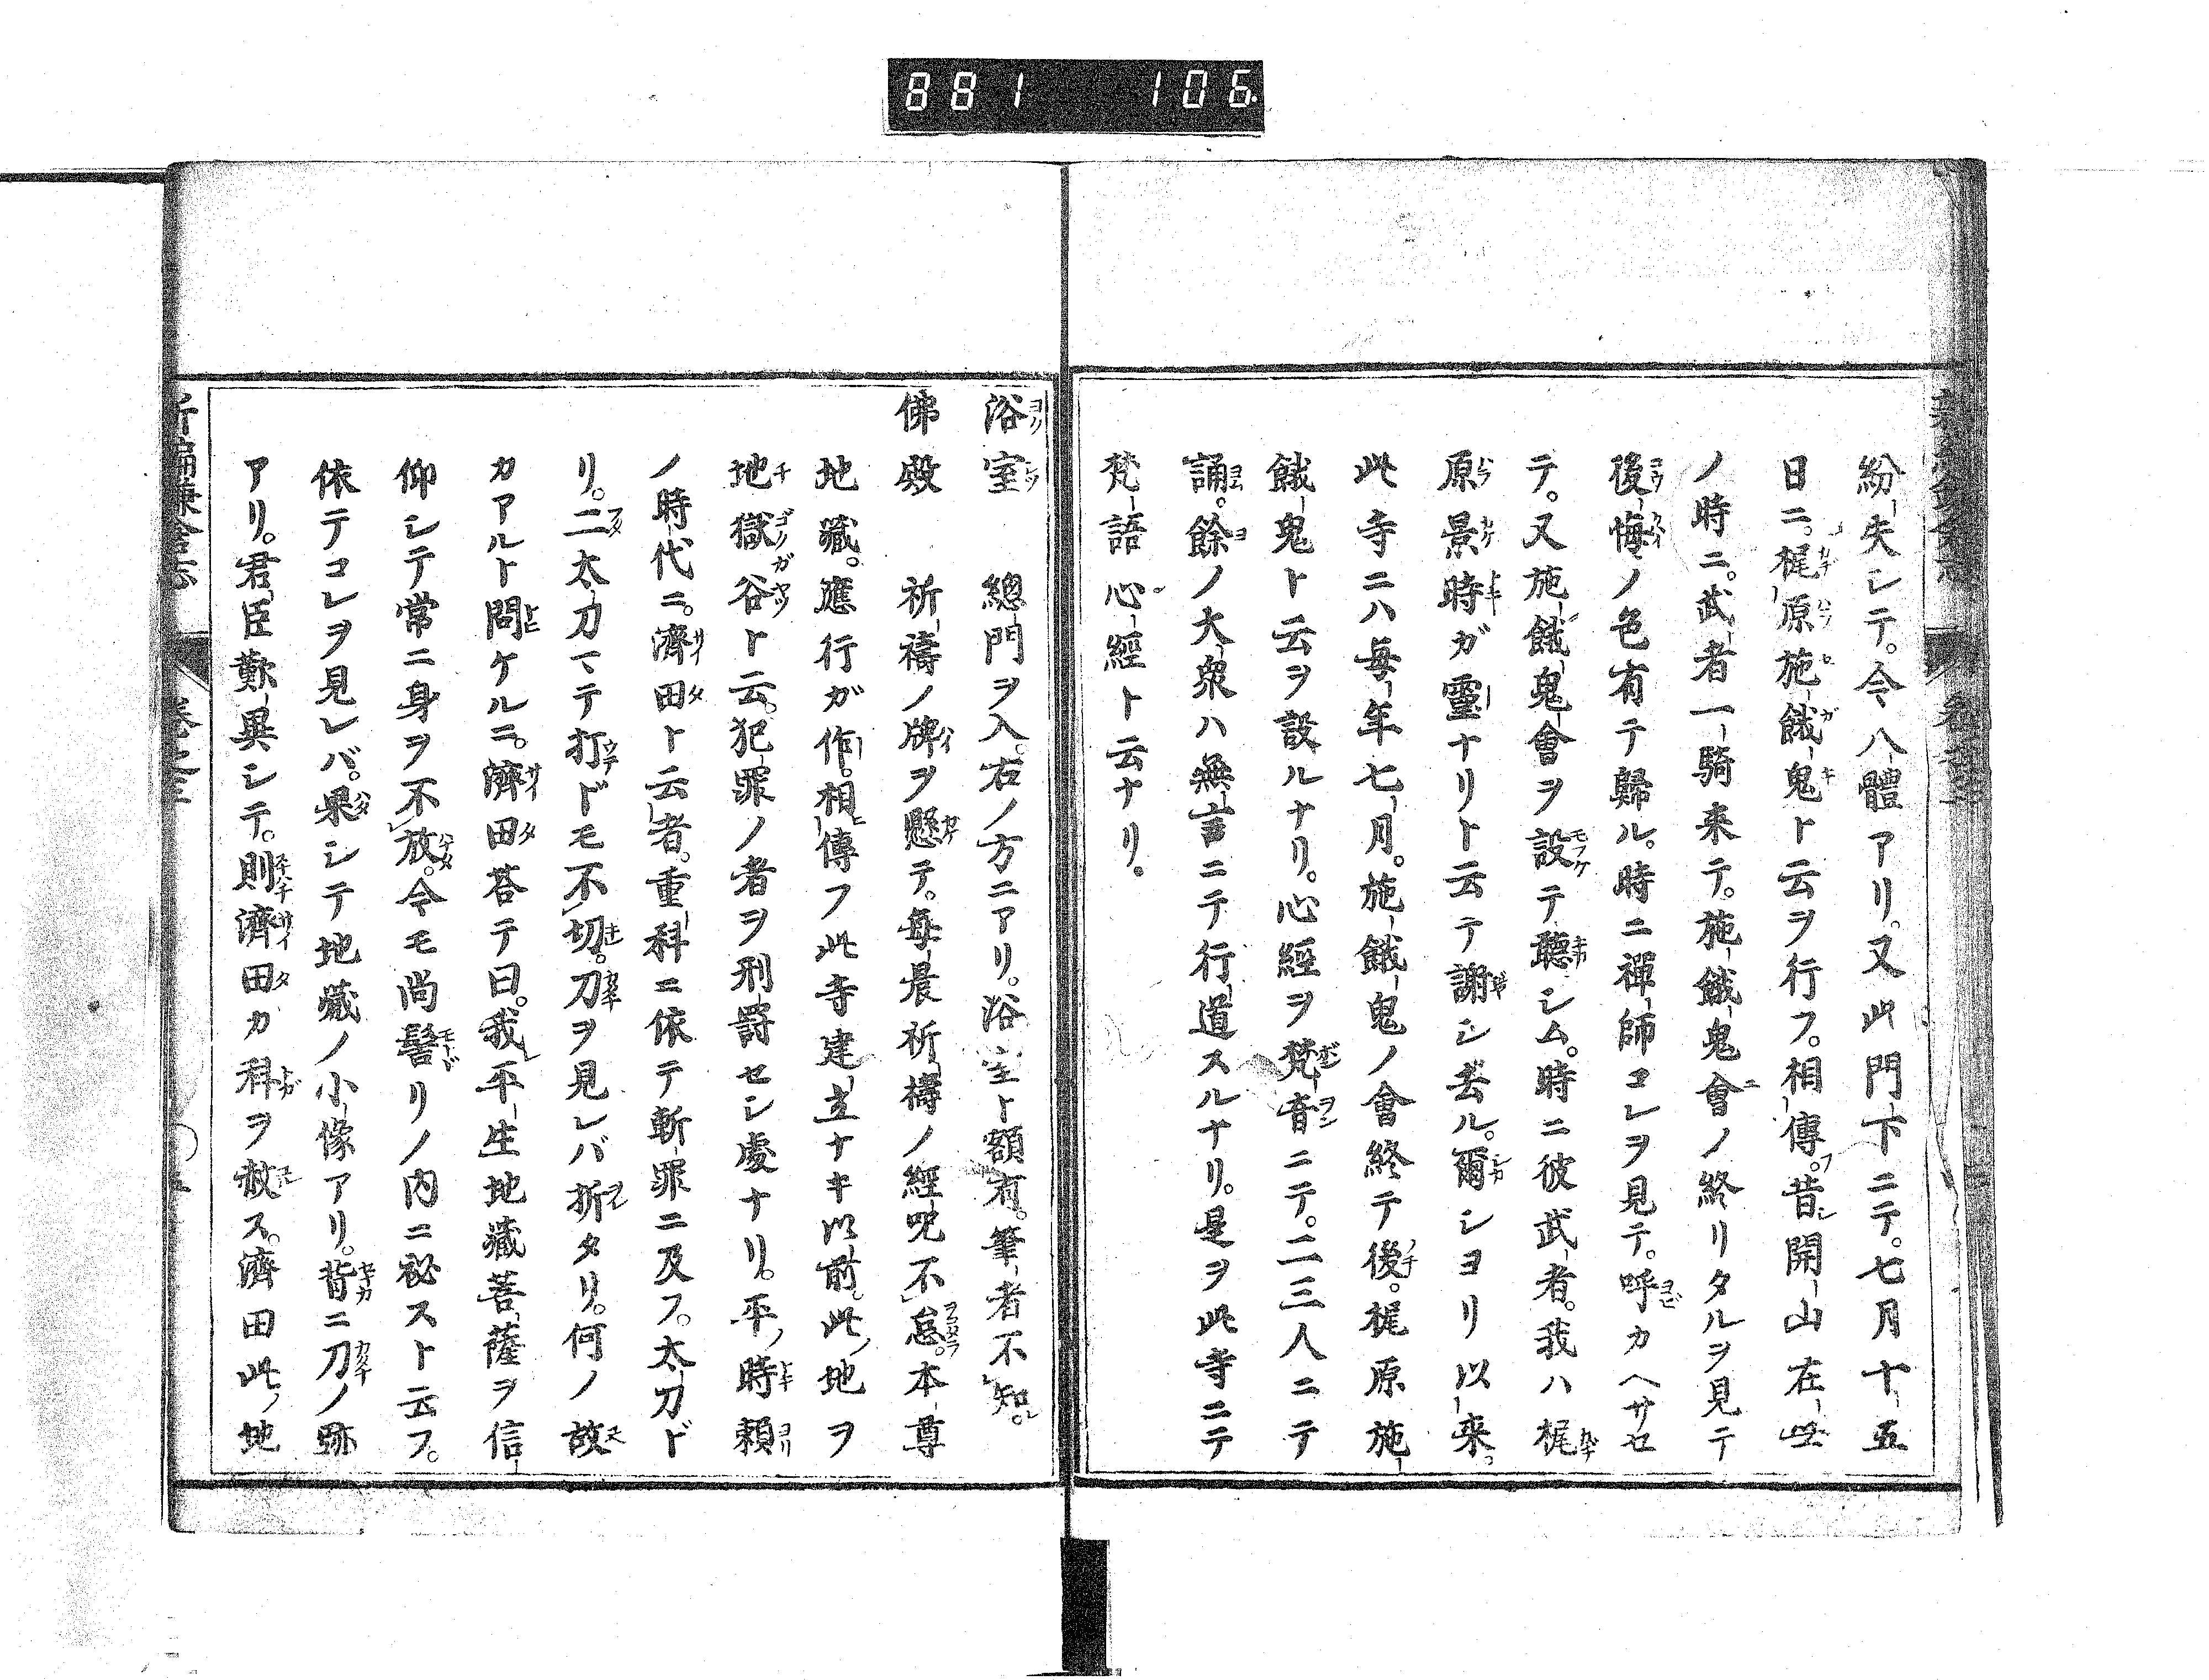 881 106
紛失シテ。今八體アリ。又此門下ニテ。七月十五
日ニ。梶原施餓鬼ト云ヲ行フ。相傳フ。昔シ開山在世
ノ時ニ。武者一騎来テ。施餓鬼會ノ終リタルヲ見テ
後悔ノ色有テ歸ル。時ニ禪師コレヲ見テ。呼カヘサセ
テ。又施餓鬼會ヲ設テ聽シム。時ニ彼武者。我ハ梶
原景時ガ靈ナリト云テ謝シ去ル。爾シヨリ以来。
此寺ニハ毎年七月。施餓鬼ノ會終テ後。梶原施
餓鬼ト云ヲ設ルナリ。心經ヲ梵音ニテ。二三人ニテ
誦。餘ノ大衆ハ無言ニテ行道スルナリ。是ヲ此寺ニテ
梵語心經ト云ナリ。
浴室 總門ヲ入。右ノ方ニアリ。浴室ト額有。筆者不知。
佛殿 祈禱ノ牌ヲ懸テ。毎晨祈禱ノ經呪不怠。本尊
地藏。應行ガ作。相傳フ此寺建立ナキ以前。此ノ地ヲ
地獄谷ト云。犯罪ノ者ヲ刑罸セシ處ナリ。平ノ時頼
ノ時代ニ。濟田ト云者。重科ニ依テ斬罪ニ及フ。太刀ド
リ。二太刀マテ打ドモ不切。刀ヲ見レバ折タリ。何ノ故
カアルト問ケルニ。濟田荅テ曰。我平生地藏菩薩ヲ信
仰シテ常ニ身ヲ不放。今モ尚髻リノ内ニ祕スト云フ。
依テコレヲ見レバ。果シテ地藏ノ小像アリ。背ニ刀ノ跡
アリ。君臣歎異シテ。則濟田カ科ヲ赦ス。濟田此ノ地
新編鎌倉志 卷之三